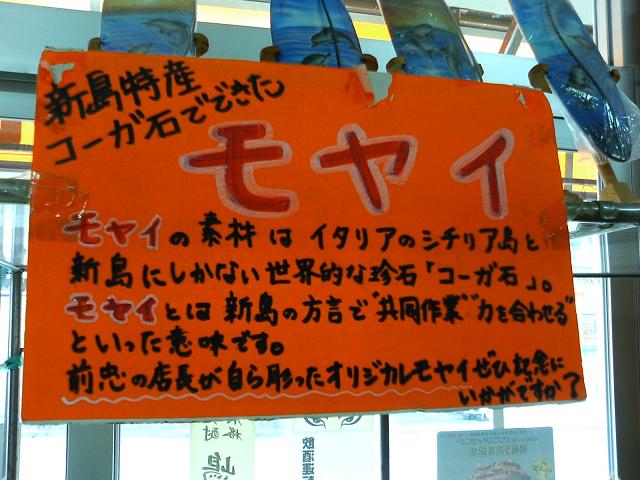 新島特産
コーガ石でできた
モヤイ
モヤイの素材はイタリアのシチリア島と
新島にしかない世界的な珍石「コーガ石」。
モヤイとは新島の方言で"共同作業""力を合わせる"
といった意味です。
前忠の店長が自ら彫ったオリジナルモヤイぜひ記念に
いかがですか?
飲酒運転